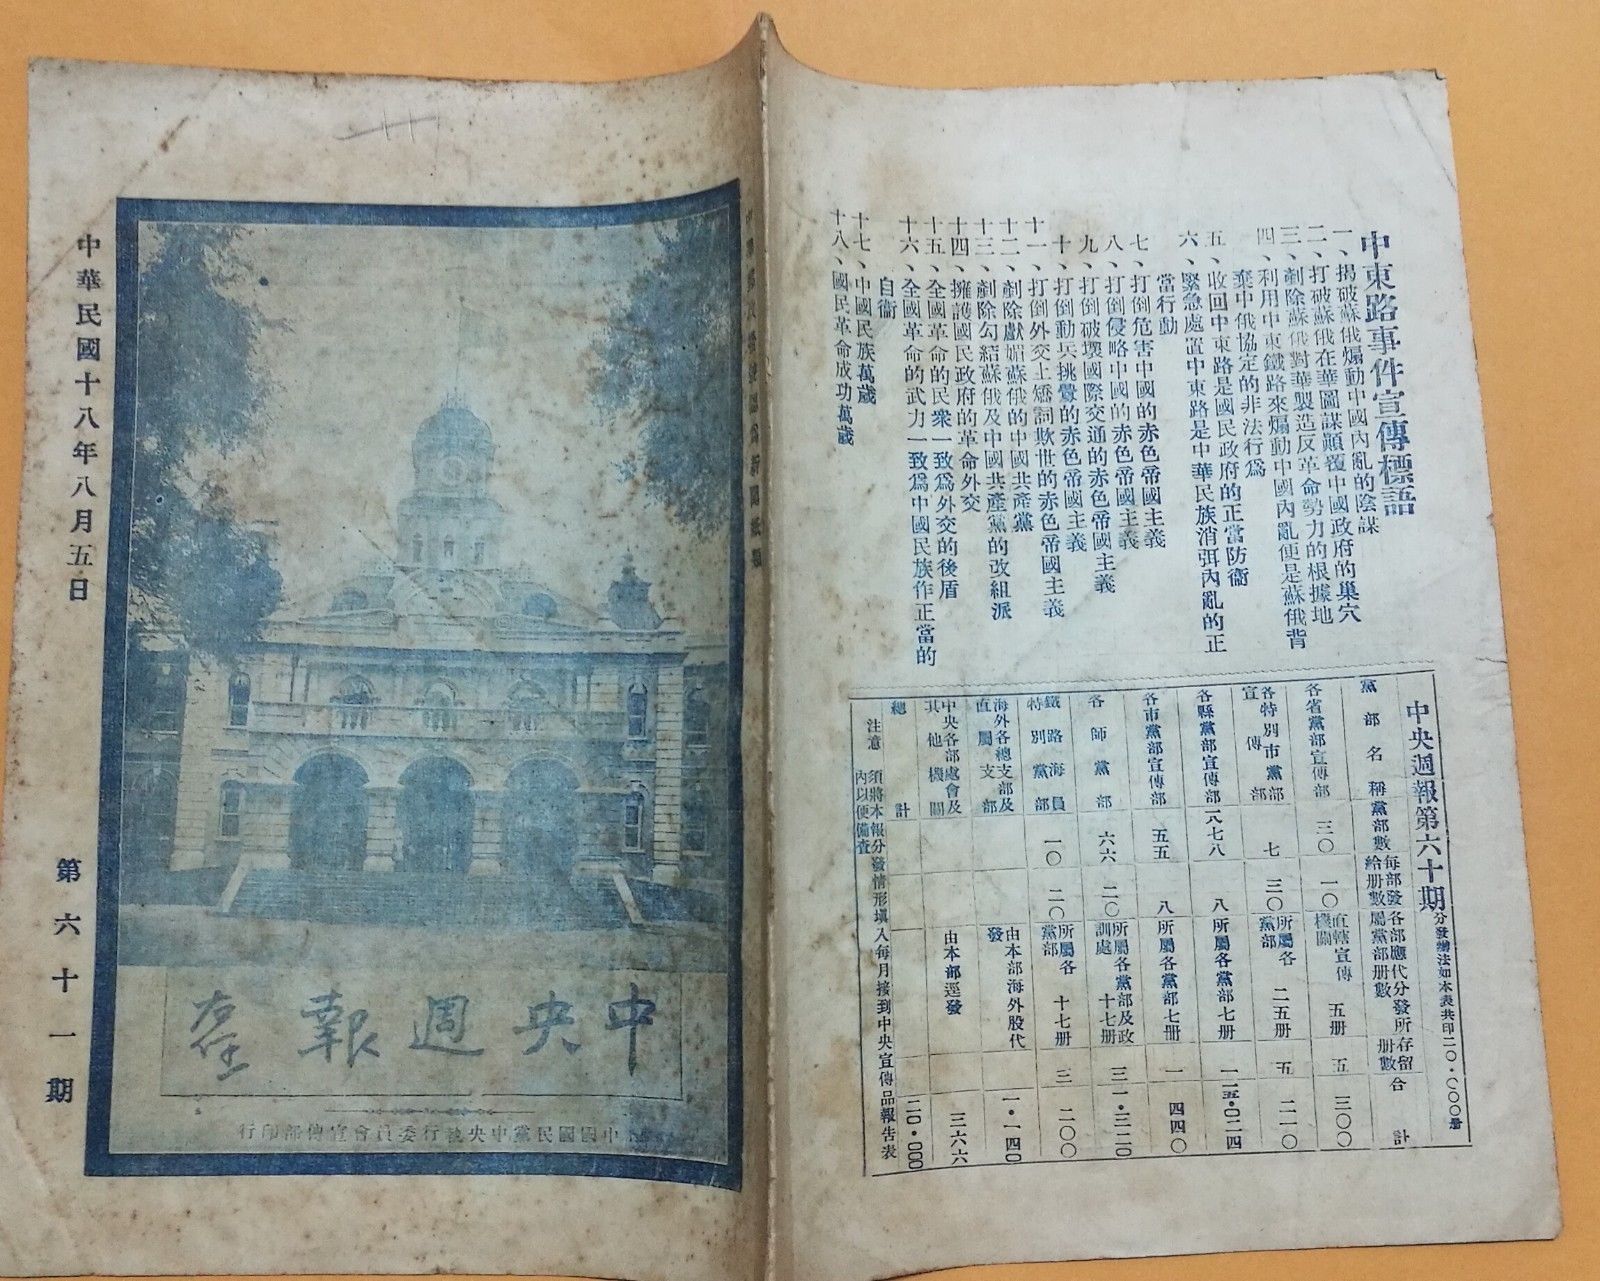 中華民國十八年八月五日
第六十一期
中央週報
中國國民黨中央執行委員會宣傳部印行
中東路事件宣傳標語
一、揭破蘇俄煽動中國內亂的陰謀
二、打破蘇俄在華圖謀顛覆中國政府的巢穴
三、剷除蘇俄對華製造反革命勢力的根據地
四、利用中東鐵路來煽動中國內亂便是蘇俄背
棄中俄協定的非法行為
五、收回中東路是國民政府的正當防衛
六、緊急處置中東路是中華民族消弭內亂的正
當行動
七、打倒危害中國的赤色帝國主義
八、打倒侵略中國的赤色帝國主義
九、打倒破壞國際交通的赤色帝國主義
十、打倒動兵挑釁的赤色帝國主義
十一、打倒外交上矯詞欺世的赤色帝國主義
十二、剷除獻媚蘇俄的中國共產黨
十三、剷除勾結蘇俄及中國共產黨的改組派
十四、擁護國民政府的革命外交
十五、全國革命的民衆一致爲外交的後盾
十六、全國革命的武力一致爲中國民族作正當的
自衞
十七、中國民族萬歲
十八、國民革命成功萬歲
中央週報第六十期分發辦法如本表共印二〇・〇〇〇册
黨部名稱 黨部數 每部發給册數 各部應代分發所屬黨部册數 存留册數 合計
各省黨部宣傳部 三〇 一〇 直轄宣傳機關 五册 五 三〇〇
各特別市黨部宣傳部 七 三〇 所屬各黨部 二五册 五 二一〇
各縣黨部宣傳部 一八七八 八 所屬各黨部七册 一 一五・〇二四
各市黨部宣傳部 五五 八 所屬各黨部七册 一 四四〇
各師黨部 六六 二〇 所屬各黨部及政訓處 十七册 三 一・三二〇
鐵路海員特別黨部 一〇 二〇 所屬各黨部 十七册 三 二〇〇
海外各總支部及直屬支部 由本部海外股代發 一・一四〇
中央各部處會及其他機關 由本部逕發 三六六
總計 二〇・〇〇〇
注意 須將本報分發情形填入每月接到中央宣傳品報告表
內以便備查